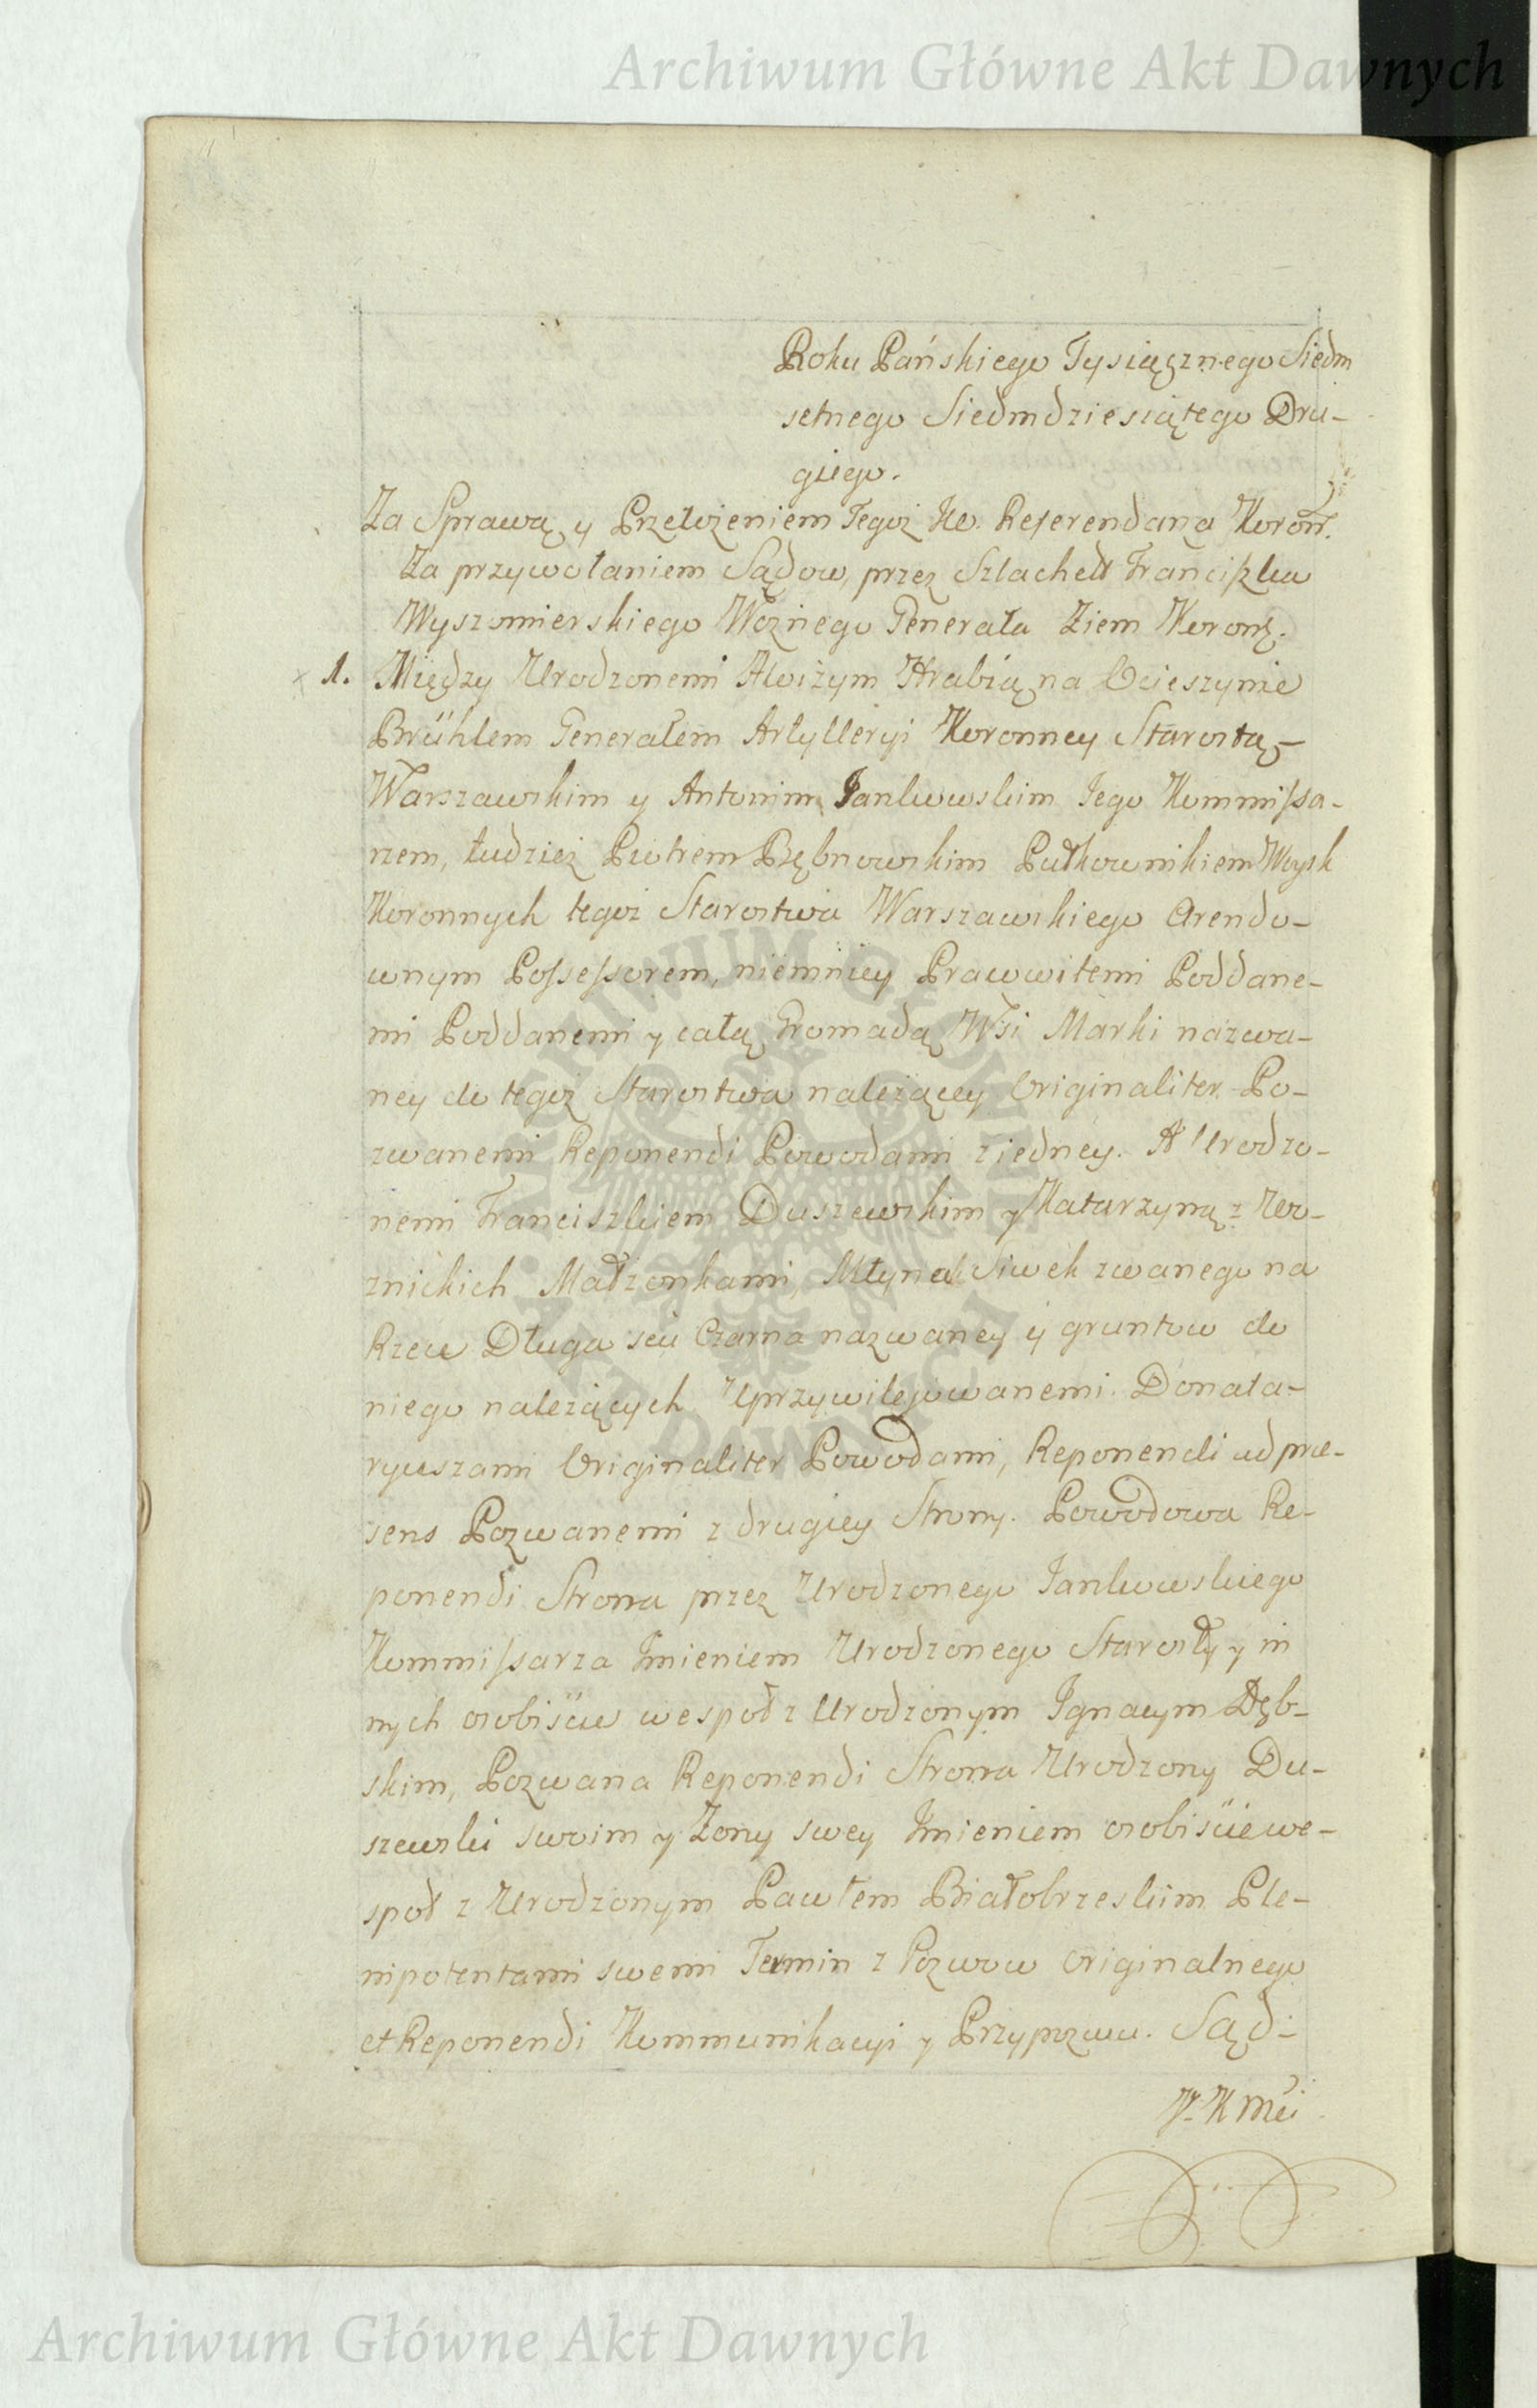 Archiwum Główne Akt Dawnych
Roku Pańskiego Tysiącznego Siedm
setnego Siedmdziesiątego Dru-
giego.
Za Sprawą y Przełożeniem Tegoż JW. Referendarza Koron.
Za przywołaniem Sądow, przez Szlachett Franciszka
Wyszomierskiego Woźnego Generała Ziem Koron.
1. Między Urodzonemi Aloiżym Hrabią na Ocieszynie
Brühlem Generałem Artylleryi Koronney Starostą
Warszawskim y Antonim Jankowskim Jego Kommissa-
rzem, tudzież Piotrem Bębnowskim Pułkownikiem Woysk
Koronnych tegoż Starostwa Warszawskiego Arendo-
wnym Possessorem, niemniey Pracowitemi Poddane-
mi Poddanemi y całą Gromadą Wsi Marki nazwa-
ney do tegoż Starostwa należącey Originaliter Po-
zwanemi Reponendi Powodami z iedney. A Urodzo-
nemi Franciszkiem Duszewskim y Katarzyną z
znickich Małżonkami, Młyna Siwek zwanego na
Rzece Długa seu Czarna nazwaney y gruntow do
niego należących Uprzywilejowanemi Donata-
ryuszami Originaliter Powodami, Reponendi ad prae-
sens Pozwanemi z drugiey Strony. Powodowa Re-
ponendi Strona przez Urodzonego Jankowskiego
Kommissarza Jmieniem Urodzonego Starosty y in
nych osobiście wespoł z Urodzonym Ignacym Dęb-
skim, Pozwana Reponendi Strona Urodzony Du-
szewski swoim y Żony swey Jmieniem osobiście we-
społ z Urodzonym Pawłem Białobrzeskim Ple-
nipotentami swemi Termin z Pozwow Originalnego
et Reponendi Kommunikacyi y Przypozwu. Sąd
Archiwum Główne Akt Dawnych